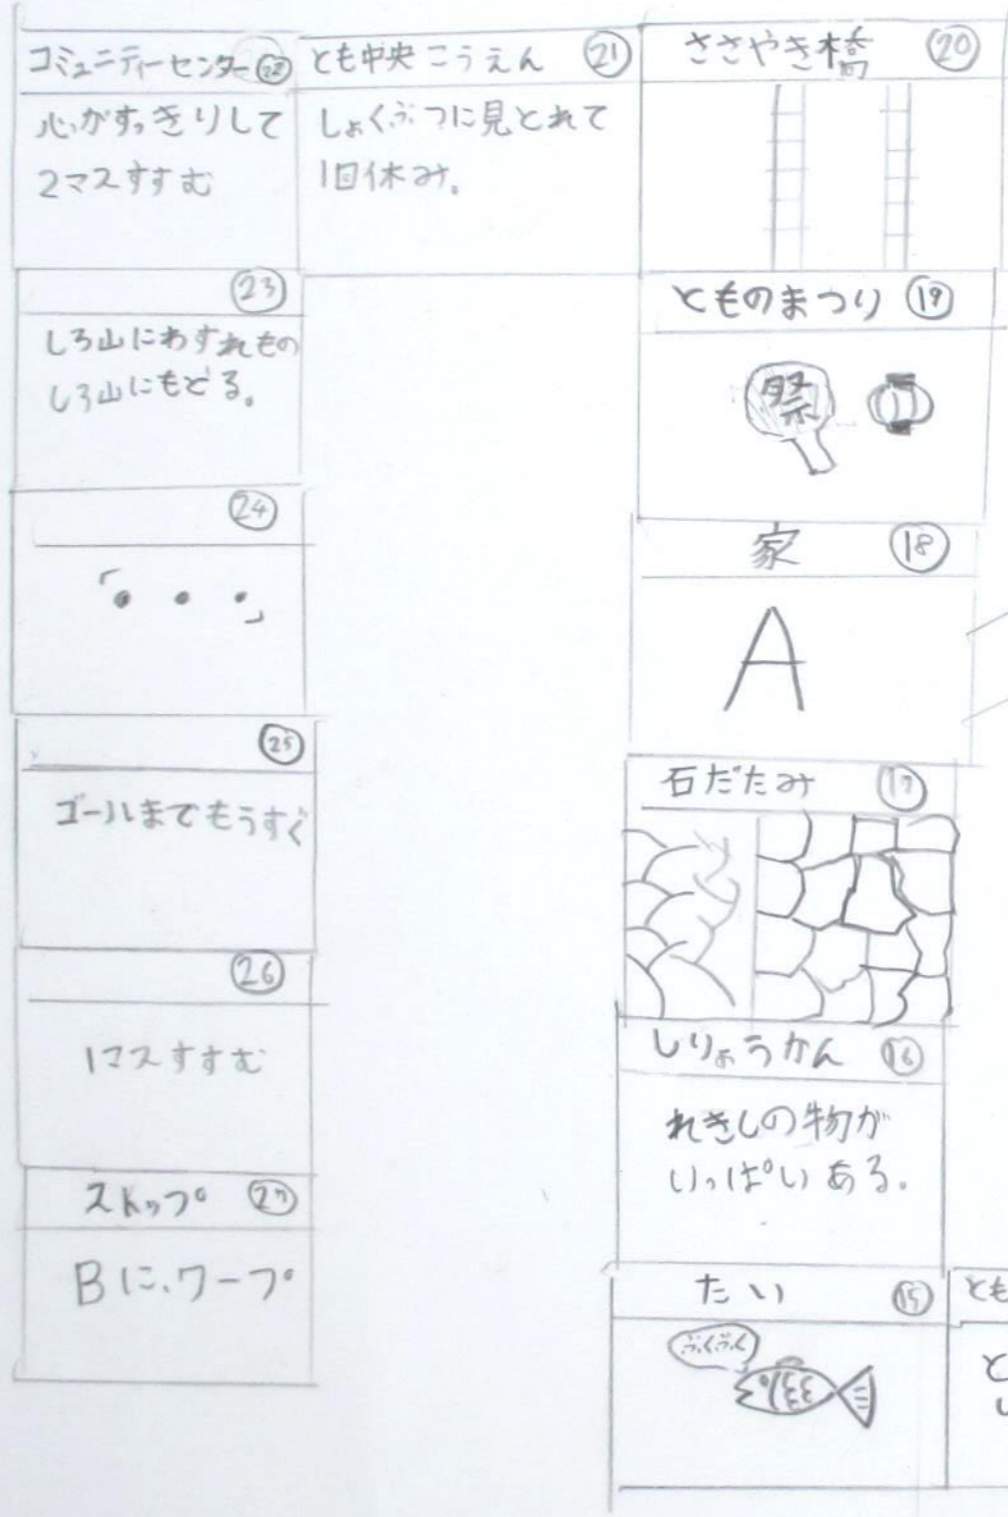 コミュニティーセンター 22
心がすっきりして
2マスすすむ
とも中央こうえん 21
しょくぶつに見とれて
1回休み。
ささやき橋 20
23
しろ山にわすれもの
しろ山にもどる。
とものまつり 19
祭
24
「・・・」
家 18
A
25
ゴールまでもうすぐ
石だたみ 17
26
1マスすすむ
しりょうかん 16
れきしの物が
いっぱいある。
ストップ 27
Bに、ワープ
たい 15
ぶくぶく
とも
と